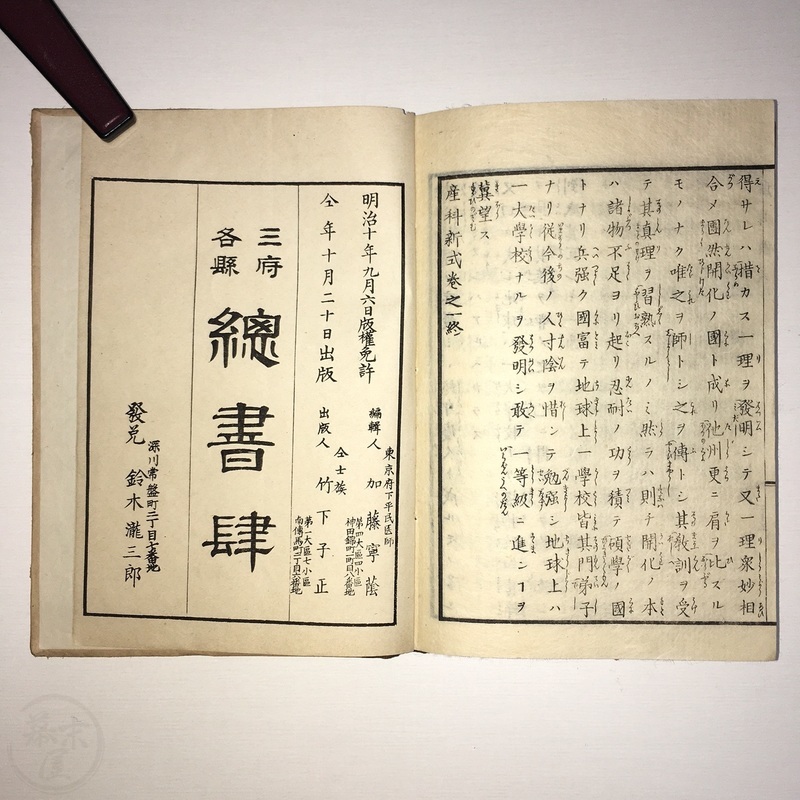 得サレハ措カス一理ヲ發明シテ又一理衆妙相
合メ國然開化ノ國ト成リ他州更ニ肩ヲ比スル
モノナク唯之ヲ師トシ之ヲ傳トシ其教訓ヲ受
テ其真理ヲ習熟スルノミ然ラハ則チ開化ノ本
ハ諸物不足ヨリ起リ忍耐ノ功ヲ積テ碩學ノ國
トナリ兵强ク國富テ地球上一學校皆其門弟子
ナリ従今後ノ人寸陰ヲ惜ンテ勉强シ地球上ハ
一大學校ナルヲ發明シ敢テ一等級ニ進ンヿヲ
冀望ス
産科新式卷之一終
明治十年九月六日版權免許
仝年十月二十日出版
東京府下平民医師
編輯人 加藤寧蔭
第四大區四小區
神田錦町一町目八番地
仝士族
出版人 竹下子正
第一大區七小區
南傳馬町二丁目六番地
三府
各縣
總書肆
深川常盤町二丁目七番地
發兌 鈴木瀧三郎